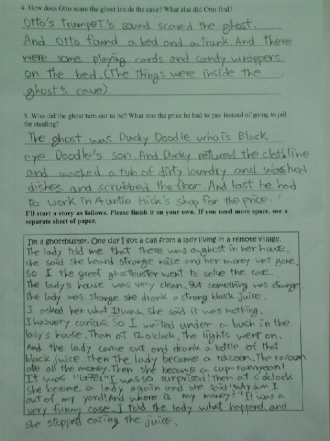 4. How does Otto scare the ghost inside the cave? What else did Otto find?
Otto's trumpet's sound scared the ghost.
And Otto found a bed and a trunk. And there
were some playing cards and candy wrappers
on the bed. (The things were inside the
ghost's cave)
5. Who did the ghost turn out to be? What was the price he had to pay instead of going to jail
for stealing?
The ghost was Ducky Doodle who is Black
eye Doodle's son. And Ducky returned the clothline
and washed a tub of dirty laundry and washed
dishes and scrubbed the floor. And last he had
to work in Auntie Hick's shop for the price.
I'll start a story as follows. Please finish it on your own. If you need more space, use a
separate sheet of paper.
I'm a ghostbuster. One day I got a call from a lady living in a remote village.
The lady told me that there was a ghost in her house.
She said she heard strange noise and her money was gone.
So I the great ghostbuster went to solve the case.
The lady's house was very clean. But something was strange
The lady was strange she drank a strong black juice.
I asked her what it was, she said it was nothing.
I was very curious so I waited under a bush in the
lady's house. Than at 12 o'clock, the lights went on.
And the lady come out and drank a bottle of that
black juice. Then the lady became a racoon. The racoon
ate all the money. Then she became a
It was I was so surprised! then at o'clock
she became a lady again and she said "why am I
out of my yard! And where is my money!" It was a
very funny case. I told the lady what happend, and
she stopped eating the juice.